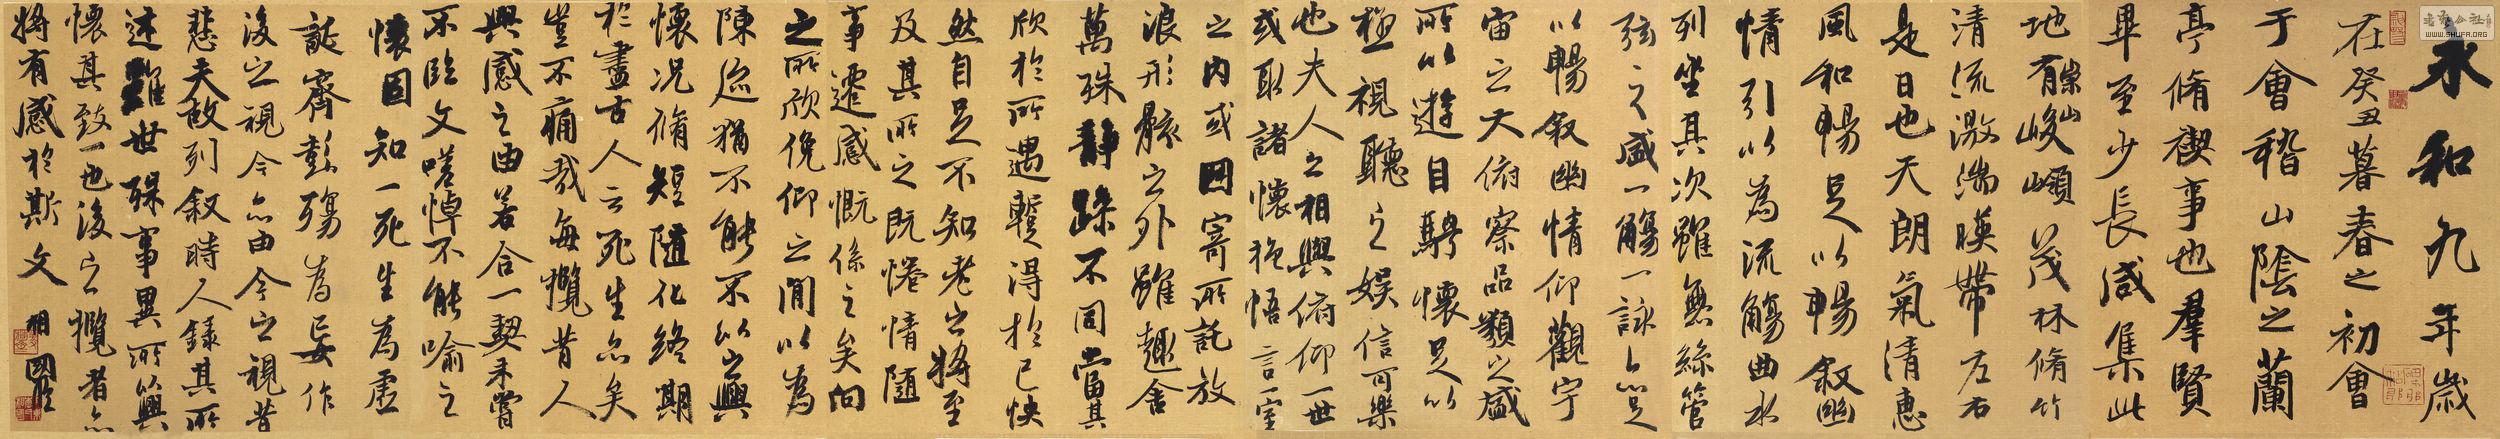 永和九年歲
在癸丑暮春之初會
于會稽山陰之蘭
亭脩禊事也羣賢
畢至少長咸集此
地有崇山峻嶺茂林脩竹
清流激湍暎帶左右
是日也天朗氣清惠
風和暢足以暢敘幽
情引以為流觴曲水
列坐其次雖無絲管
弦之盛一觴一詠亦足
以暢敘幽情仰觀宇
宙之大俯察品類之盛
所以遊目騁懷足以
極視聽之娛信可樂
也夫人之相與俯仰一世
或取諸懷抱悟言一室
之内或因寄所託放
浪形骸之外雖趣舍
萬殊靜躁不同當其
欣於所遇蹔得於己快
然自足不知老之將至
及其所之既惓情隨
事遷感慨係之矣向
之所欣俛仰之間以為
陳迹猶不能不以之興
懷况脩短隨化終期
於盡古人云死生亦矣
豈不痛哉每攬昔人
興感之由若合一契未嘗
不臨文嗟悼不能喻之
懷固知一死生為虛
誕齊彭殤為妄作
後之視今亦由今之視昔
悲夫故列敘時人錄其所
述雖世殊事異所以興
懷其致一也後之攬者亦
將有感於斯文
相國
WWW.SHUFA.ORG